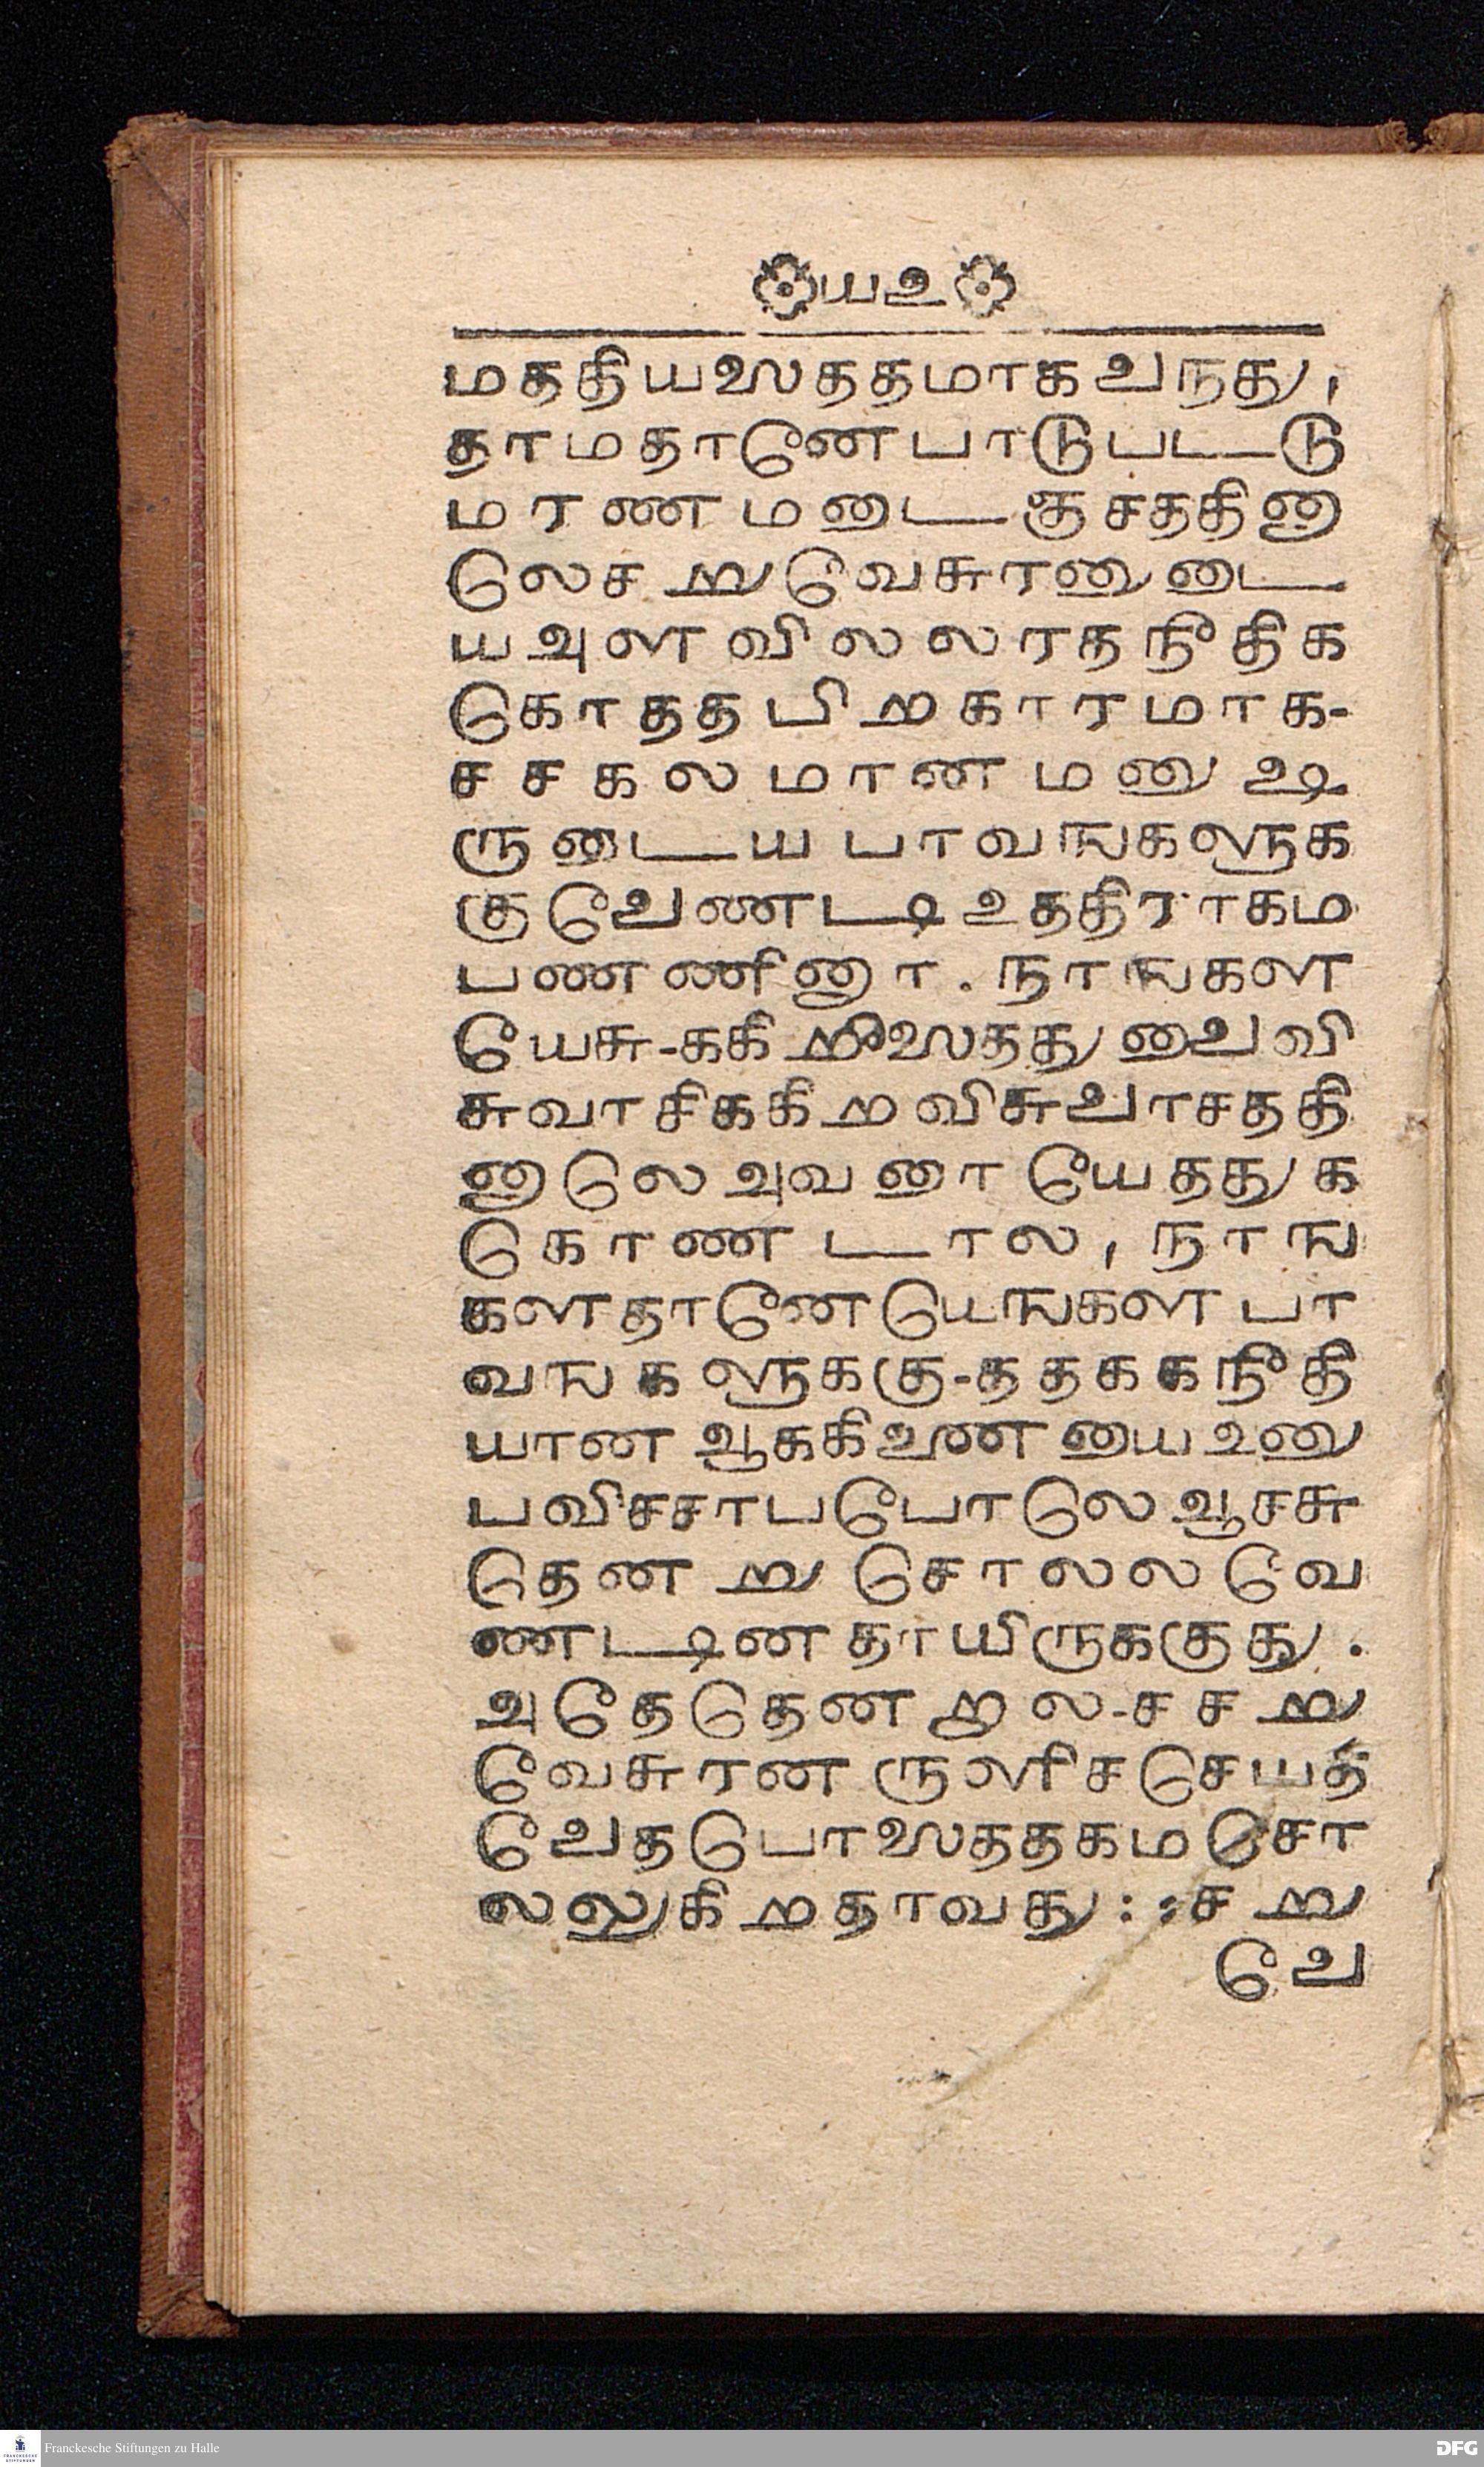 ௰௨
மததியஸததமாகவநது,
தாமதானேபாடுபடடு
மரணமடைஞசததினா
லெசறுவேசுரனுடை
யஅளவிலலாதநீதிக
கொததபிறகாரமாக-
சசகலமானமனுஷ
ருடையபாவஙகளுக
குவேணடிஉததிராகம
பணணினார.நாஙகள
யேசு-ககிறீஸததுவைவி
சுவாசிககிறவிசுவாசததி
னாலெஅவனாயேததுக
கொணடால,நாங
களதானேயெஙகளபா
வஙகளுககு-தததககநீதி
யானஆககிணையைஉனு
பவிசசாபபோலெஆசசு
தெனறுசொலலவே
ணடினதாயிருககுது.
அதேதெனறால-சசறு
வேசுரனருளிசசெயத
வேதபொஸததகமசொ
லலுகிறதாவது::சறு
வே
Franckesche Stiftungen zu Halle
FRANCKESCHE STIFTUNGEN
DFG